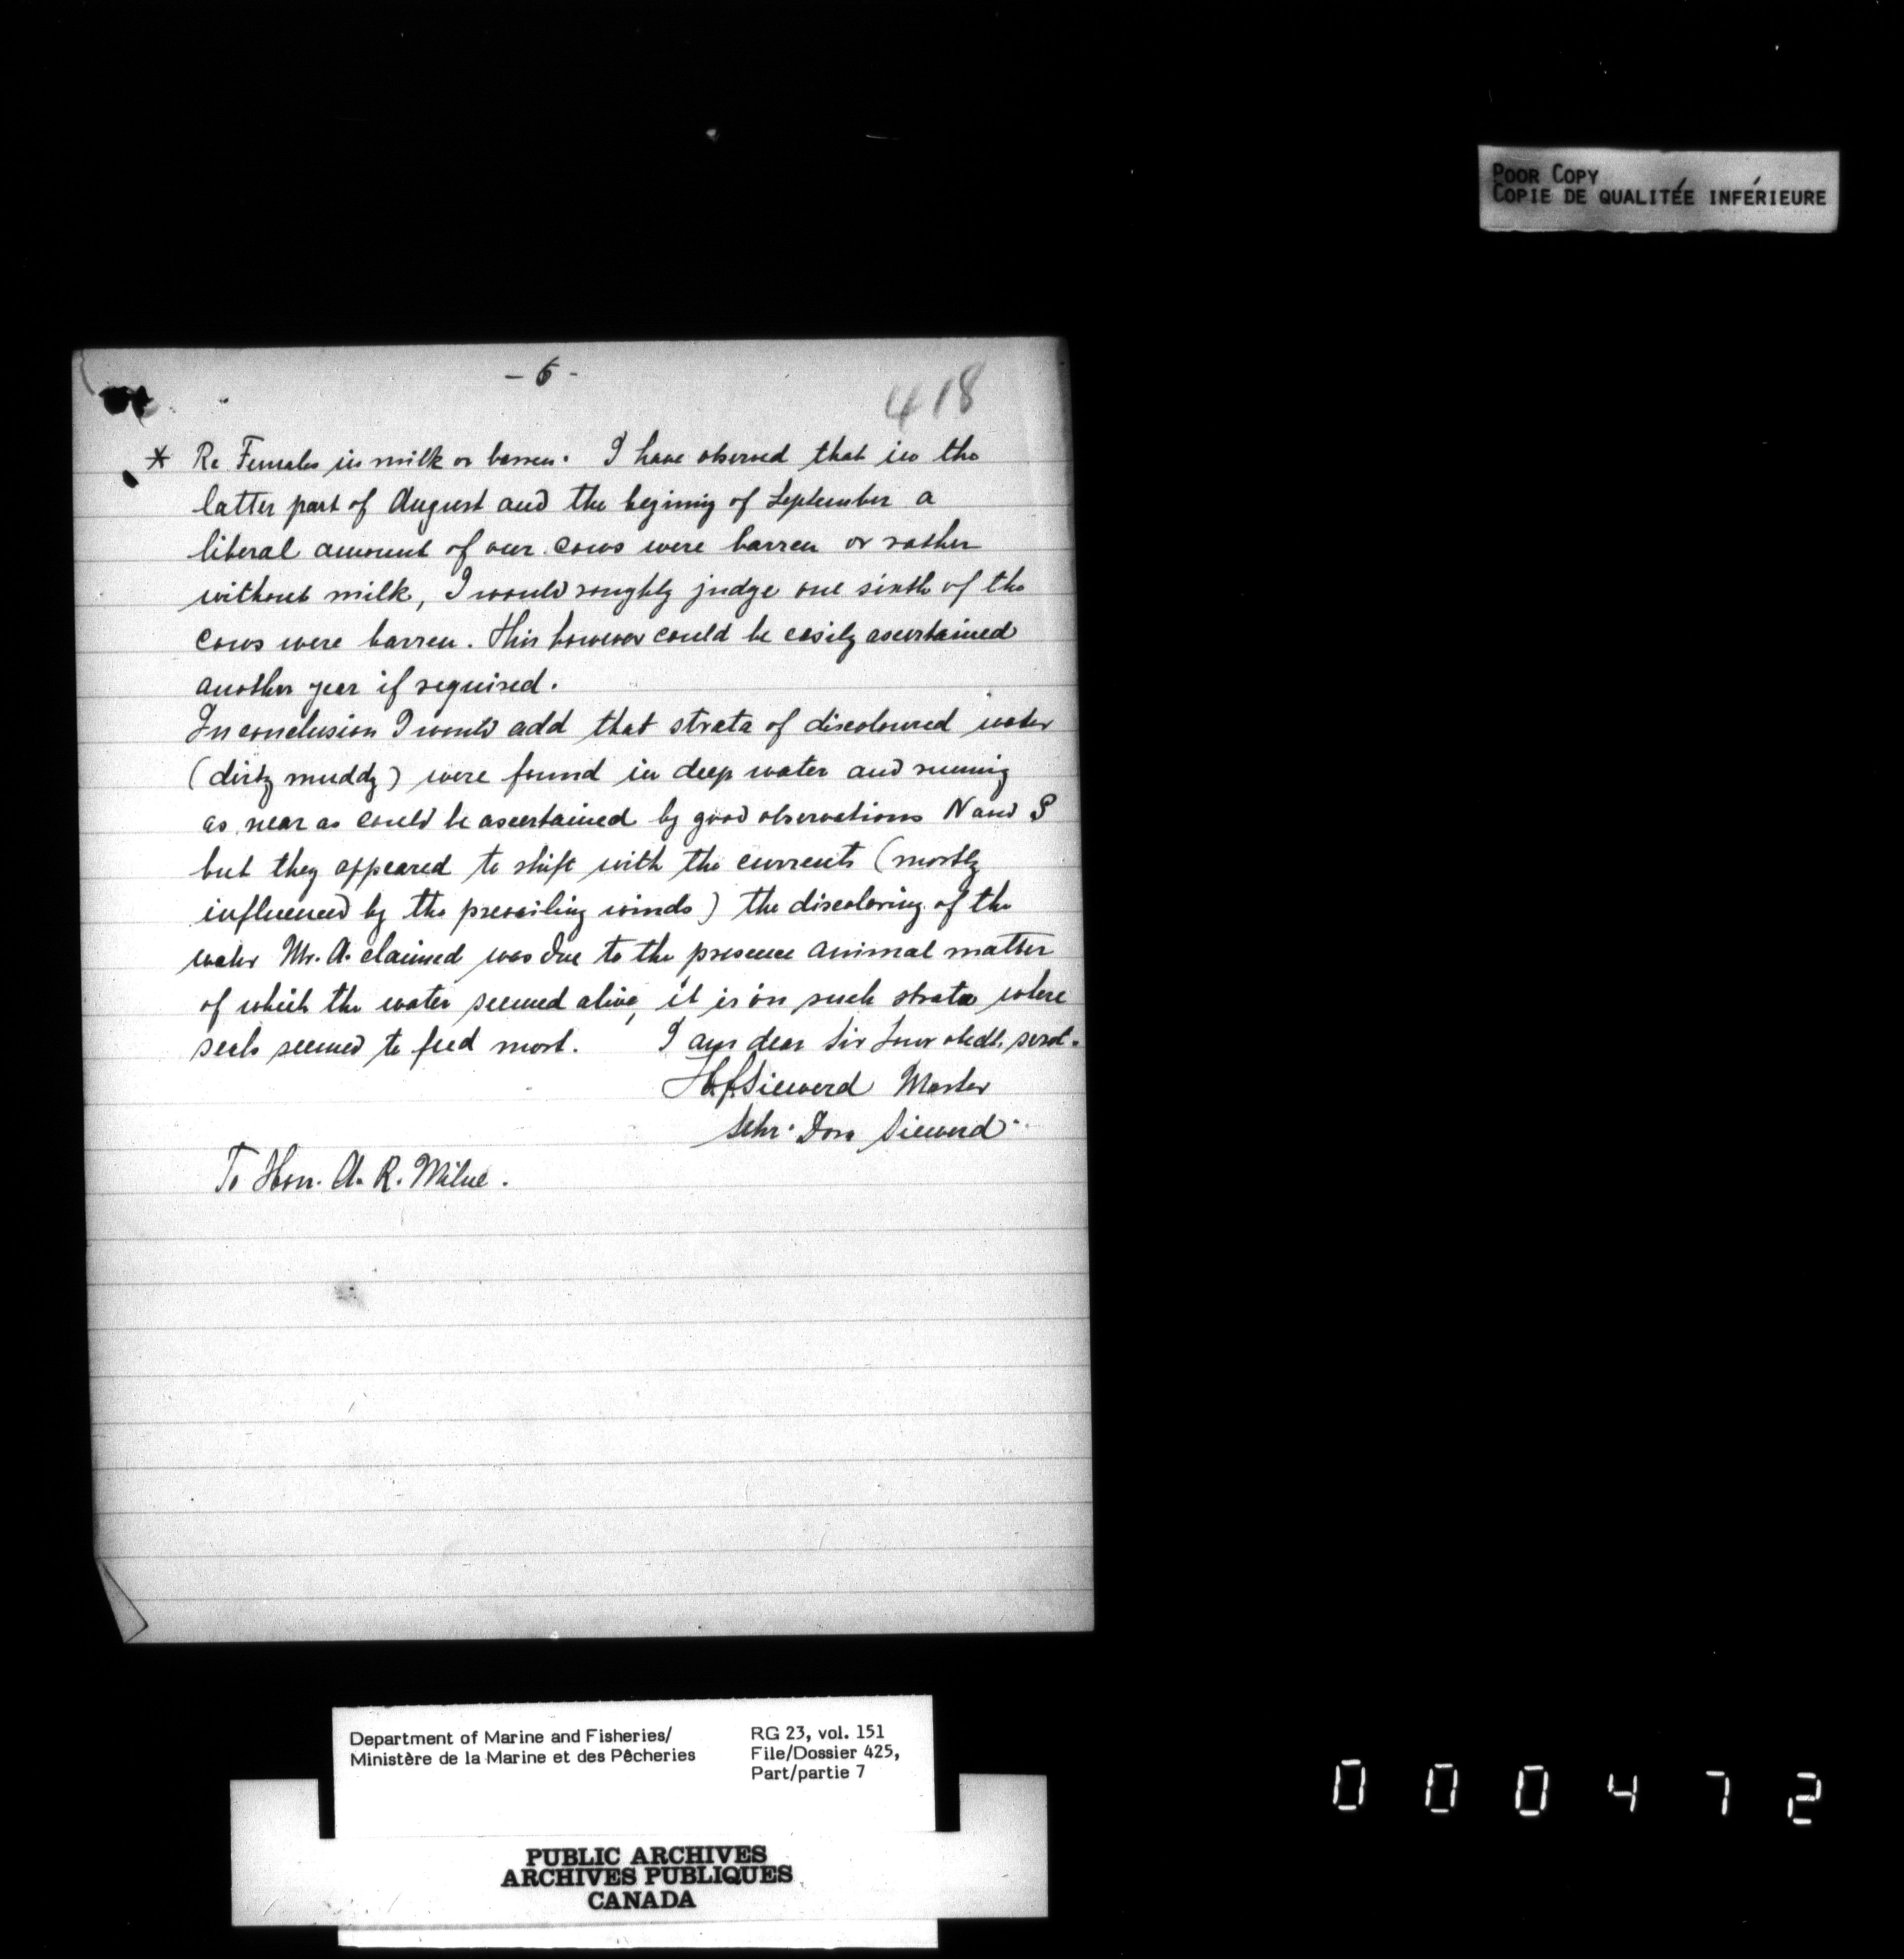 POOR COPY
COPIE DE QUALITÉE INFÉRIEURE
- 6 -
418
* Re Females in milk or barren. I have observed that in the
latter part of August and the begining of September a
liberal amount of our cows were barren or rather
without milk, I would roughly judge one sixth of the
cows were barren. This however could be easily ascertained
another year if required.
In conclusion I would add that strata of discoloured water
(dirty muddy) were found in deep water and runing
as near as could be ascertained by good observations N and S
but they appeared to shift with the currents (mostly
influenced by the prevailing winds) the discoloring of the
water Mr. A. claimed was due to the presence animal matter
of which the water seemed alive, it is on such strata where
seals seemed to feed most. I am dear Sir Your obedt. servt.
H.F. Sieward Master
Schr. Dora Sieward
To Hon. A. R. Milne.
Department of Marine and Fisheries/
Ministère de la Marine et des Pêcheries
RG 23, vol. 151
File/Dossier 425,
Part/partie 7
PUBLIC ARCHIVES
ARCHIVES PUBLIQUES
CANADA
000472